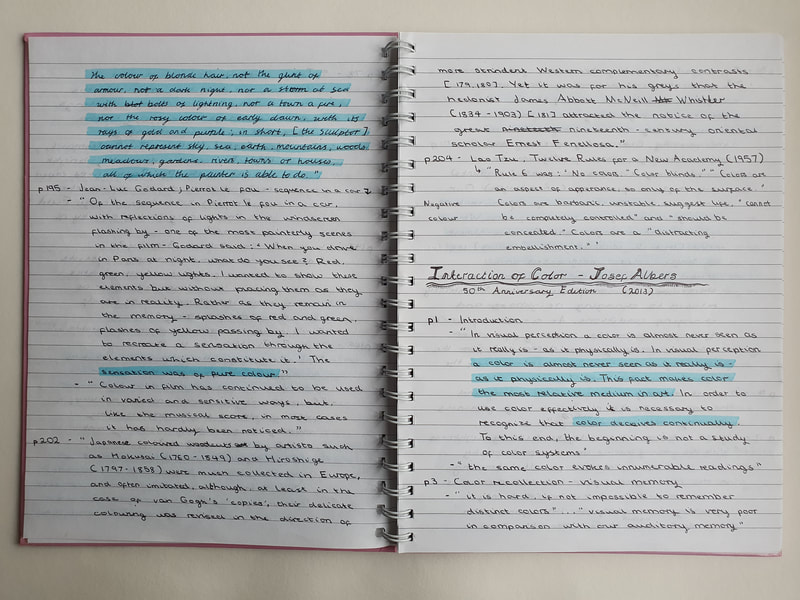 the colour of blonde hair, not the glint of
armour, not a dark night, nor a storm at sea
with bolts of lightning, nor a town a fire,
nor the rosy colour of early dawn, with its
rays of gold and purple; in short, [the sculptor]
cannot represent sky, sea, earth, mountains, woods
meadows, gardens, rivers, towns or houses,
all of which the painter is able to do."
p195 - Jean-Luc Godard, Pierrot le fou - sequence in a car
- "Of the sequence in Pierrot le fou in a car,
with reflections of lights in the windscreen
flashing by - one of the most painterly scenes
in the film - Godard said: 'When you drive
in Paris at night, what do you see? Red,
green, yellow lights. I wanted to show these
elements but without placing them as they
are in reality. Rather as they remain in
the memory - splashes of red and green,
flashes of yellow passing by. I wanted
to recreate a sensation through the
elements which constitute it.' The
sensation was of pure colour."
- "Colour in film has continued to be used
in varied and sensitive ways, but,
like the musical score, in most cases
it has hardly been noticed."
p202 - "Japanese coloured by artists such
as Hokusai (1760-1849) and Hiroshige
(1797-1858) were much collected in Europe,
and often imitated, although, at least in the
case of van Gogh's 'copies', their delicate
colouring was revised in the direction of
more strindent Western complementary contrasts
[179,180]. Yet it was for his greys that the
hedonist James Abbott McNeill Whistler
(1834-1903) [181] attracted the notice of the
great nineteenth-century oriental
scholar Ernest Fenellosa."
p204 - Lao Tzu, Twelve Rules for a New Academy (1957)
↳ "Rule 6 was: 'No colors' "Color blinds." "Colors are
an aspect of apperance, so only of the surface"
Negative colour
Colors are barbaric, unstable, suggest life, "cannot
be completely controlled" and "should be
concealed." Colors are a "distracting
embellishment."'
Interaction of Color - Josef Albers
50th Anniversary Edition (2013)
p1 - Introduction
- "In visual perception a color is almost never seen as
it really is - as it physically is. In visual perception
a color is almost never seen as it really is -
as it physically is. This fact makes color
the most relative medium in art. In order to
use color effectively it is necessary to
recognize that color deceives continually.
To this end, the beginning is not a study
of color systems"
- "the same color evokes innumerable readings"
p3 - Color recollection - visual memory
- "it is hard, if not impossible to remember
distinct colors"..." visual memory is very poor
in comparison with our auditory memory"